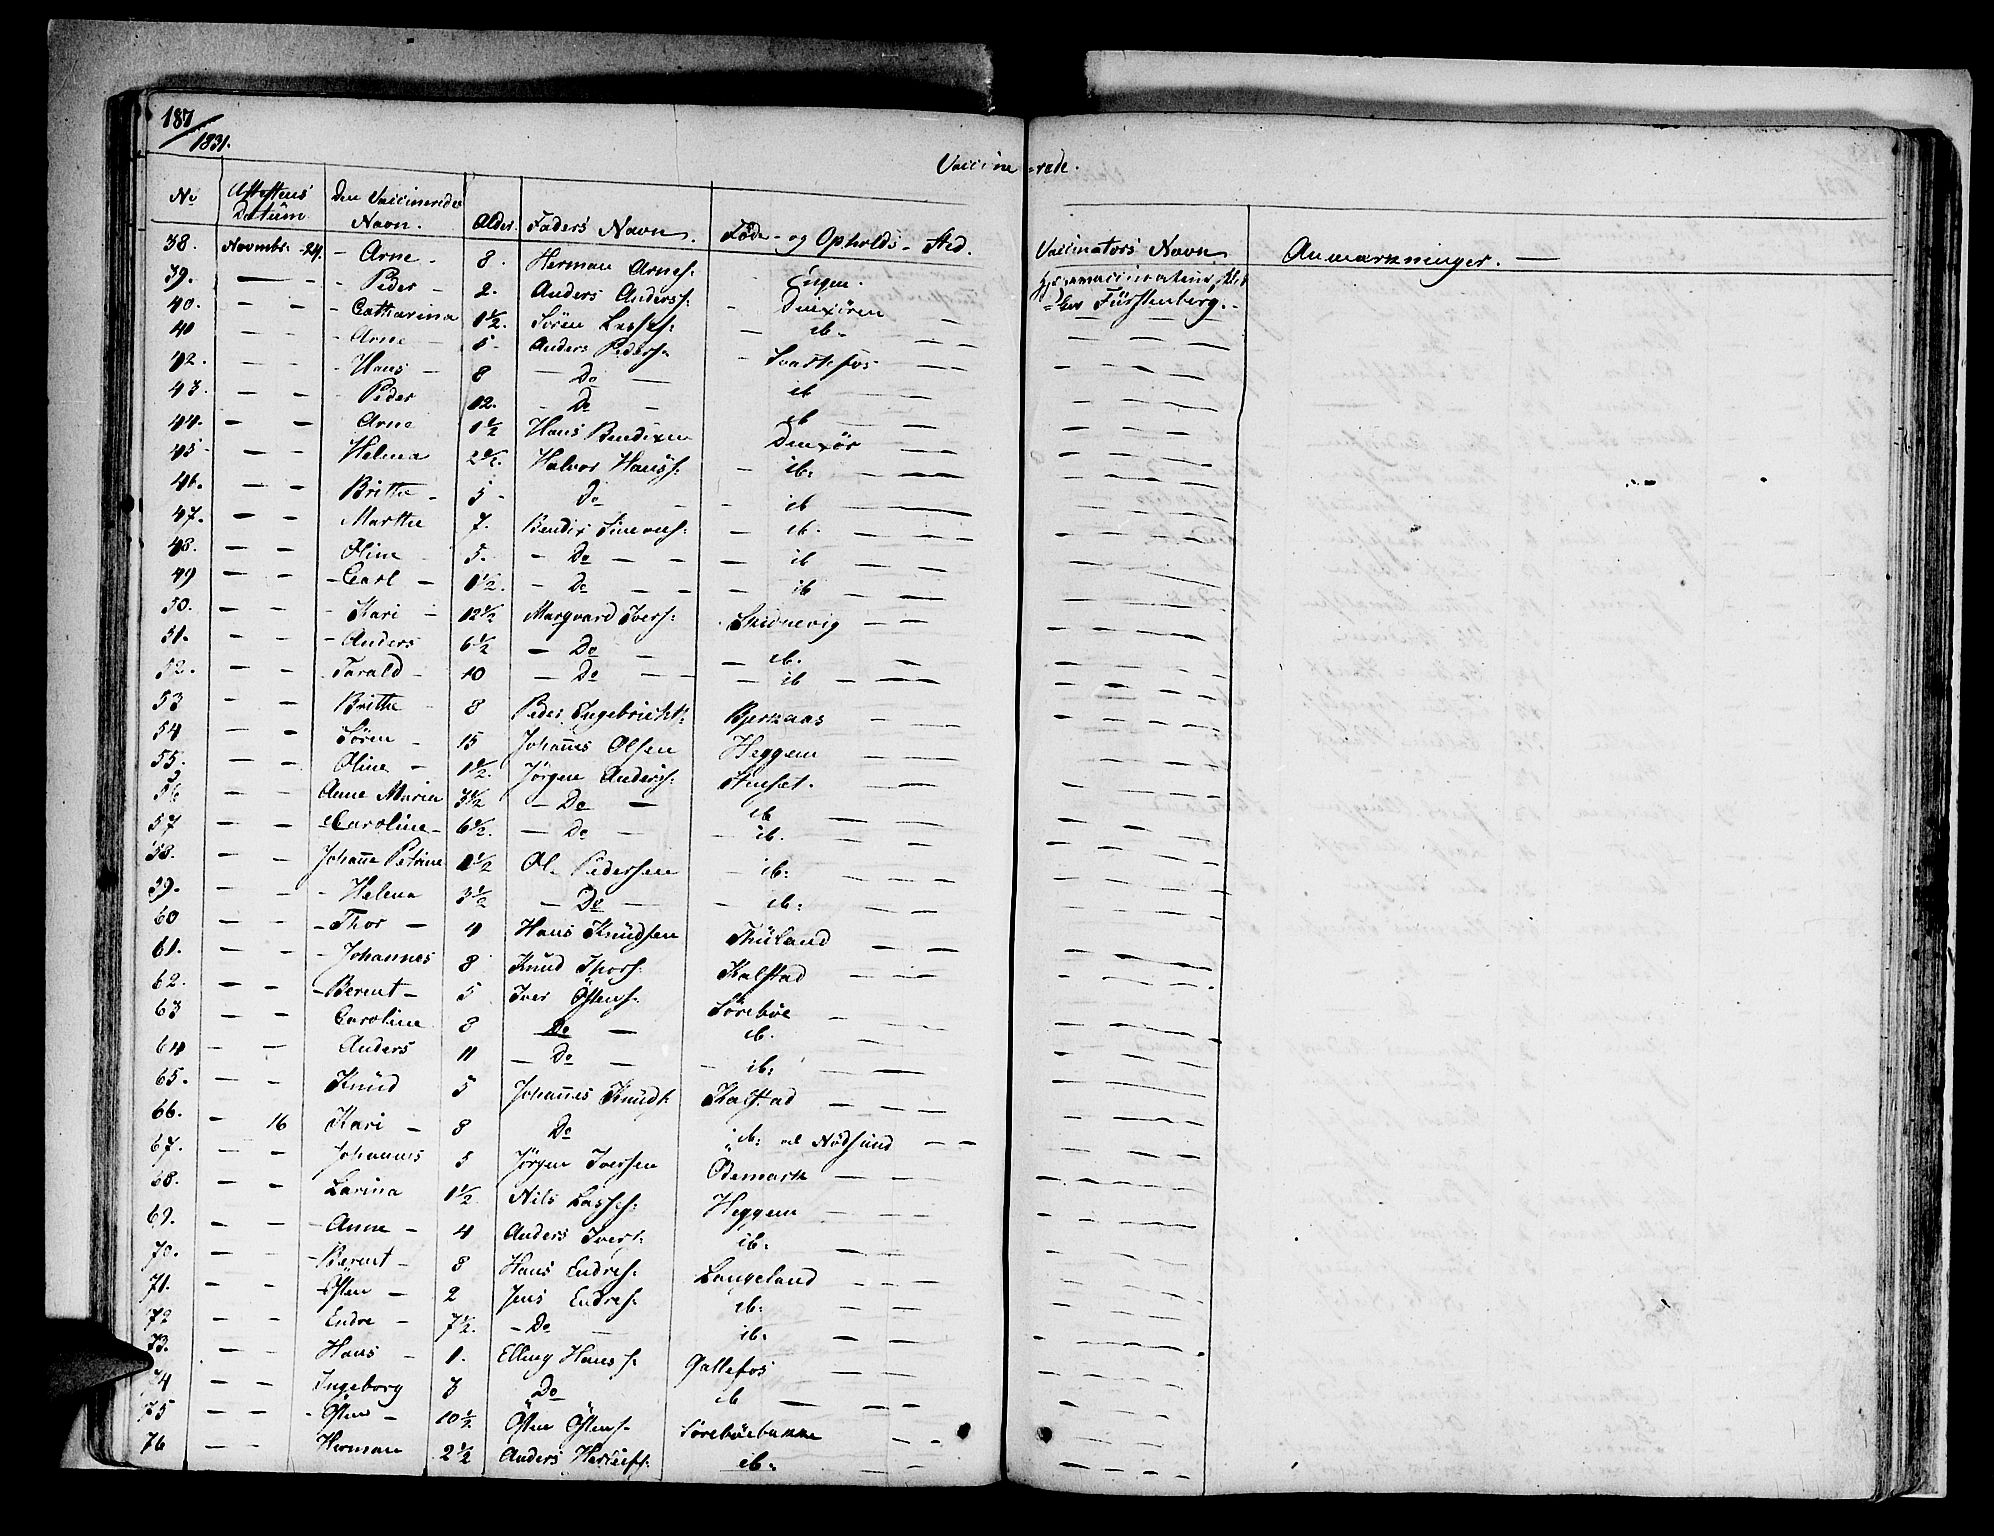 187
1831.
Vaccinerede.
No Attestens Datum Den Vaccineredes Navn. Alder. Faders Navn. Føde- og Opholds-Sted. Vaccinators Navn Anmærkninger. —
38. Novmbr. 24. - Arne - 8. Herman Arnes: Engen.
39. — - - Peder - 2. Anders Anderss: - Dinxøren Fürstenberg. -
40. — — - Catharina 1½. Søren Lasses: — ib. — —
41 — — - Arne - 5. Anders Peders: - Svartefos — —
42. — — - Hans - 8 — Do — ib — —
43. — — Peder 12. - Do - ib — —
44. — — Arne 1½ Hans Bendixen Dinxør — —
45. — — Helena 2½. Halvor Hanss: - ib. — —
46. — — Britha - 5 - Do - - ib — —
47. — — Marthe 7. Bendix Simens: — ib. — —
48. — — Oline - 5. - Do - - — ib — —
49 — — - Carl - 1½. - Do — - ib — —
50. — — - Kari - 12½ Marqvard Ivers: Skidnevig — —
51. — — - Anders 6½ — Do — — ib. — —
52. — — - Tarald - 10 — Do — - - ib - — —
53 — — Brithe - 8 Peder Ingebricht: Bjerkaas — —
54 — — Søren - 15 Johañes Olsen Heggem — —
55. — — Oline - 1½. Jørgen Anders: Stuset. — —
56 — — Anne Maria 3½ — Do — ib — —
57 — — - Caroline - 6½. — Do — - ib. — —
58. — — Johañe Petrine 1½ Ol. Pedersen - ib: — —
59. — — - Helena 3½ — Do — - ib: — —
60 — — - Thor — 4 Hans Knudsen Thuland — —
61. — — - Johannes 8 Knud Thors: Kalstad — —
62. — — - Berent - 5 Iver Östens: Sørebøe — —
63 — — Caroline 8 Do — ib. — —
64 — — Anders 11 — Do — - ib: — —
65. — — Knud 5 Johañes Knuds: Kalstad — —
66. — 16 Kari - 8 Do ib: al Nødsund — —
67. — — Johannes 5 Jørgen Iversen Ødemark — —
68. — — Larina 1½ Nils Lasses: Heggem — —
69. — — - Anne - 4 Anders Ivers: ib: — —
70. — — - Berent - 8 Hans Endres: Langeland — —
71. — — - Östen - 2 Jens Endres: ib: — —
72 — — Endre - 7½. - Do — ib: — —
73. — — Hans - 1. Elling Hanss: Gallefos — —
74 — — Ingeborg 3 Do ib — — —
75 — — - Östen - 10½ Östen Östens: Sørebøebakke — —
76 — — Herman 2½ Anders ib: — —